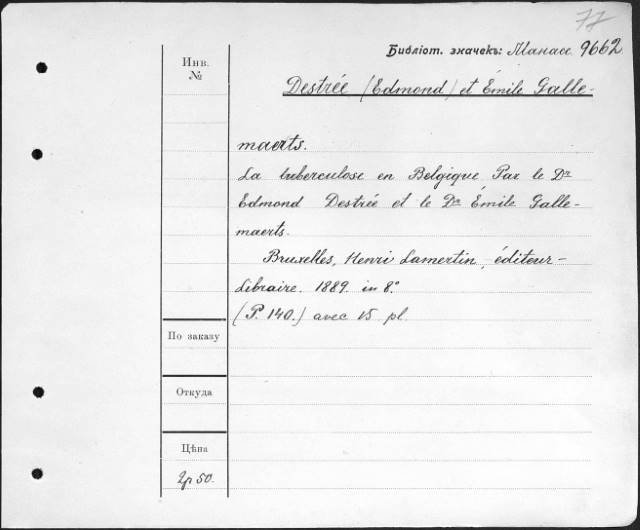 77
Библіот. значекъ: Манасс 9662
Инв.
№
Destrée (Edmond) et Émile Galle-
maerts.
La tuberculose en Belgique Par le Dr
Edmond Destrée et le Dr Émile Galle-
maerts.
Bruxelles, Henri Lamertin, éditeur-
Libraire. 1889. in 8°.
(P. 140.) avec 15 pl.
По заказу
Откуда
Цѣна
2р 50.